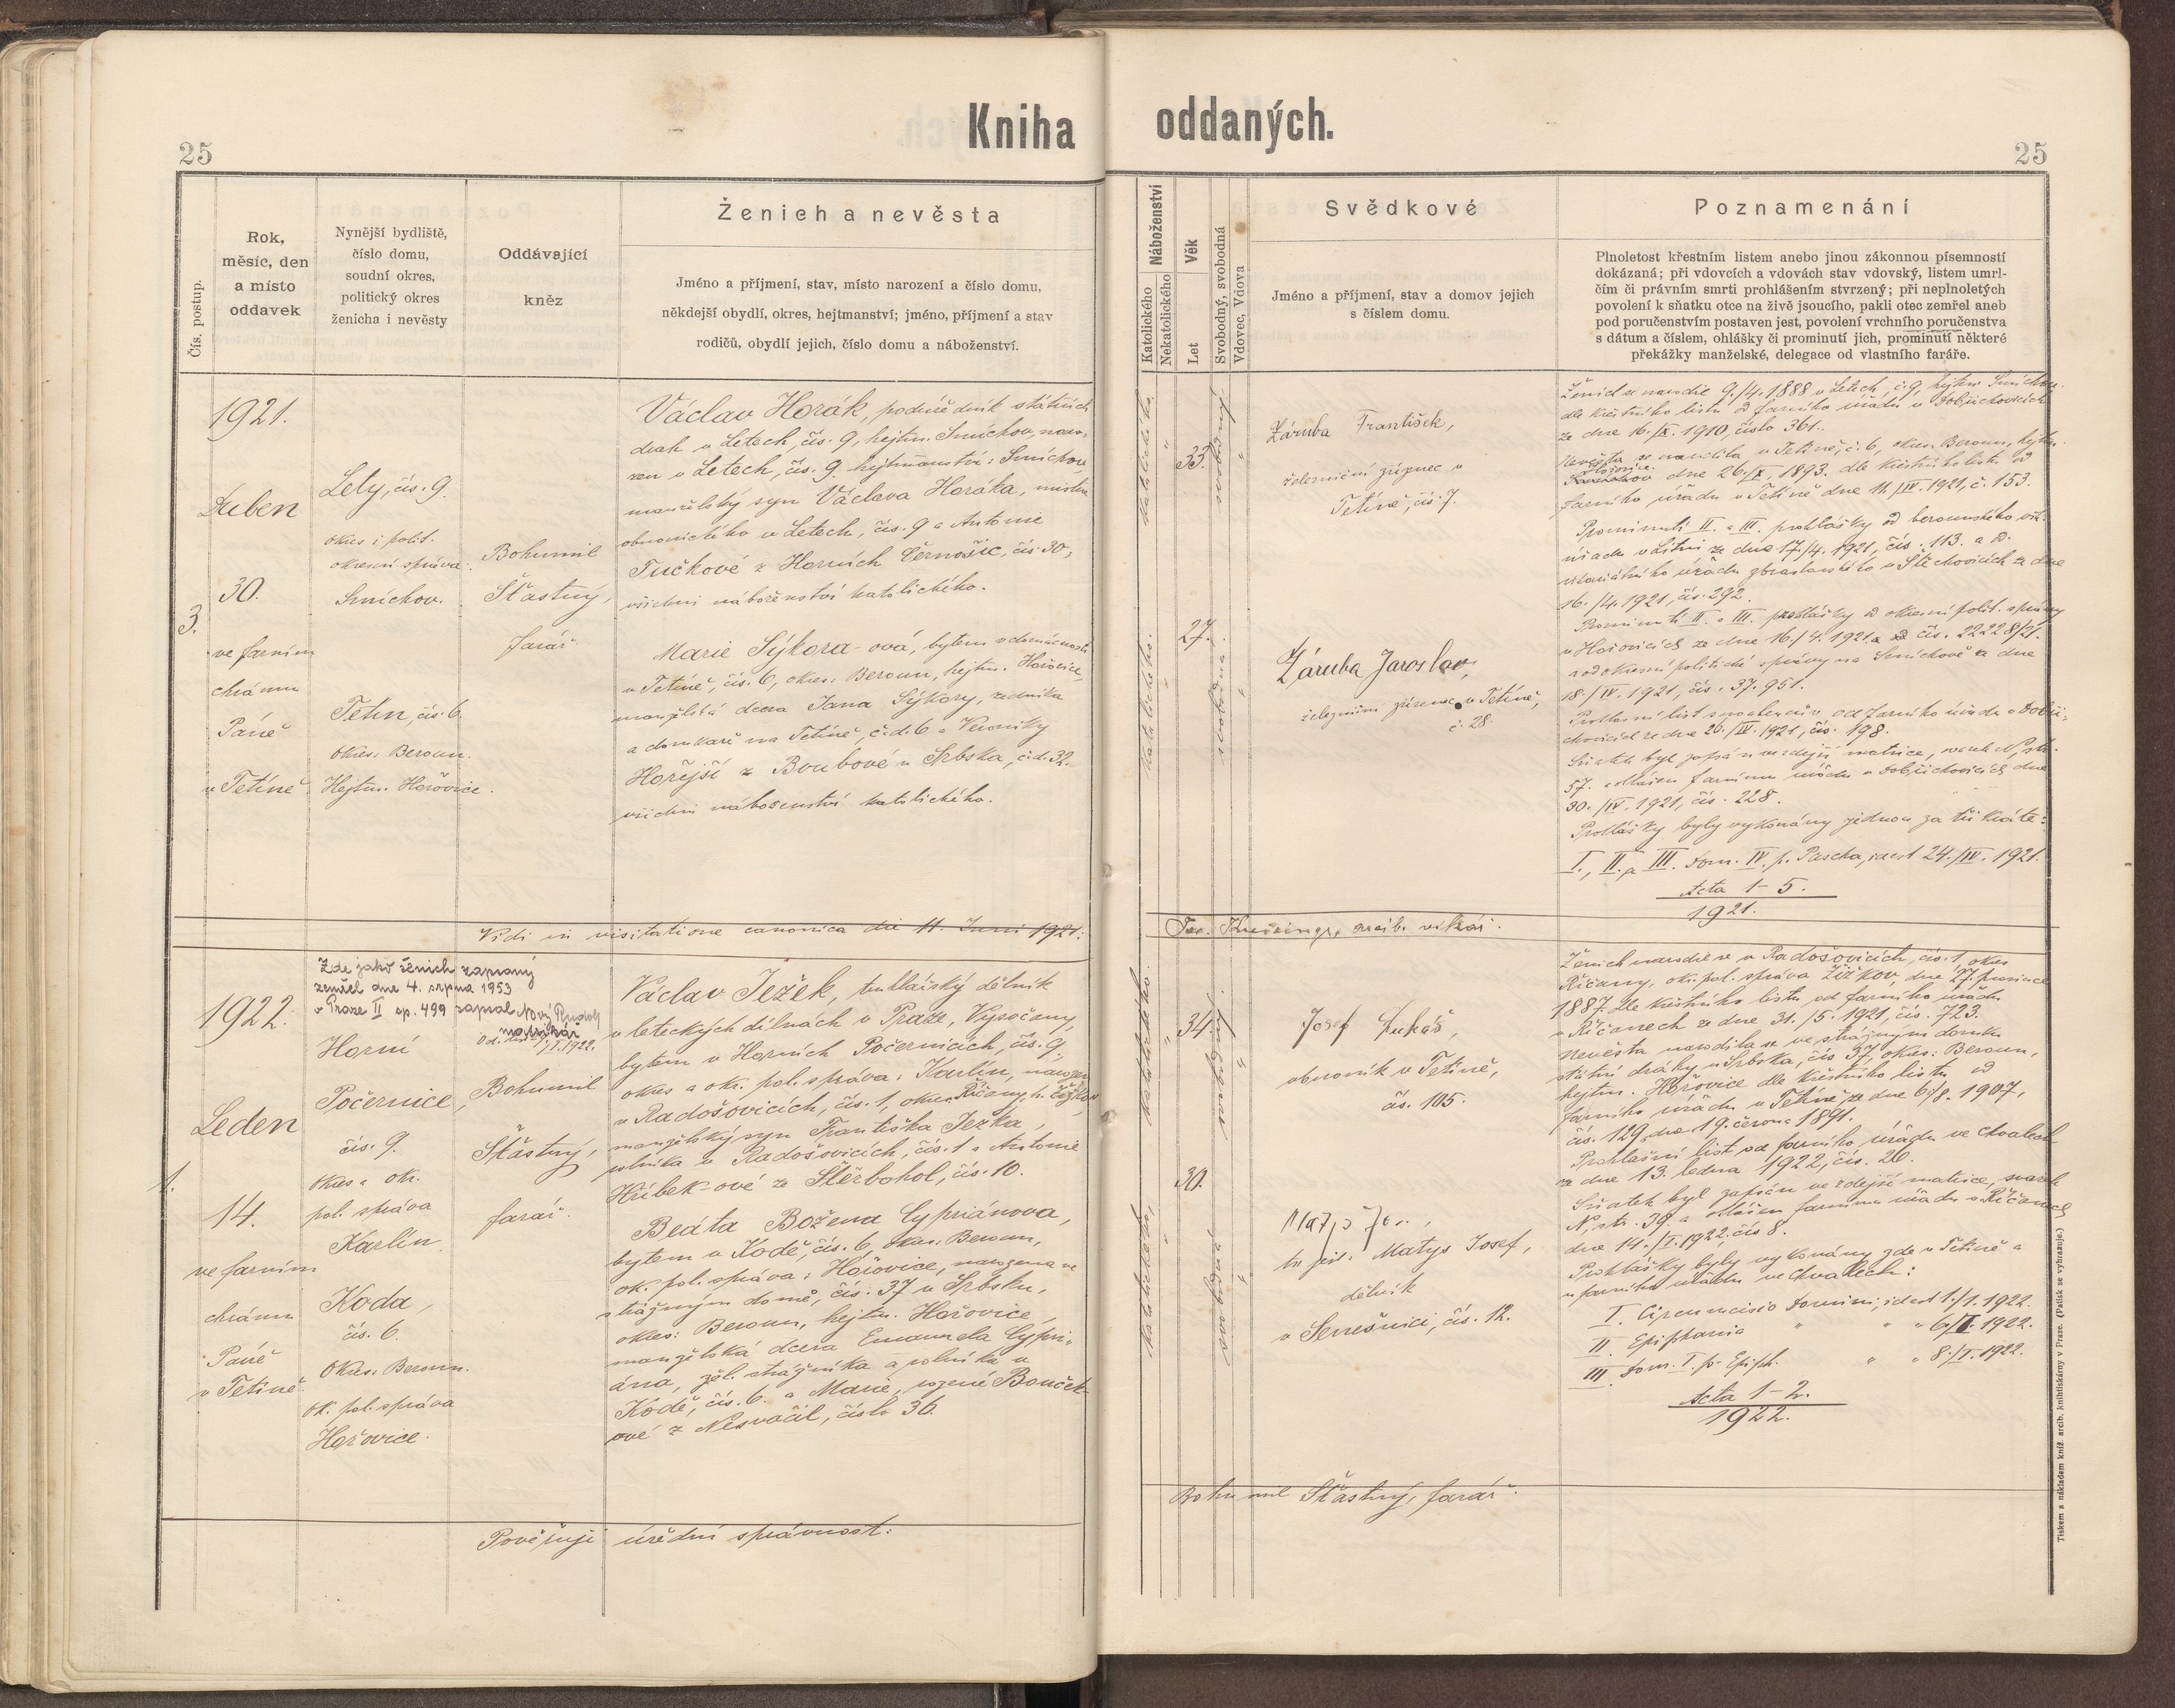 25
Kniha oddaných.
25
Čís. postup.
Rok,
měsíc, den
a místo
oddavek
Nynější bydliště,
číslo domu,
soudní okres,
politický okres
ženicha i nevěsty
Oddávající
kněz
Ženich a nevěsta
Jméno a příjmení, stav, místo narození a číslo domu,
někdejší obydlí, okres, hejtmanství; jméno, příjmení a stav
rodičů, obydlí jejich, číslo domu a náboženství.
Náboženství
Katolického
Nekatolického
Věk
Let
Svobodný, svobodná
Vdovec, Vdova
Svědkové
Jméno a příjmení, stav a domov jejich
s číslem domu.
Poznamenání
Plnoletost křestním listem anebo jinou zákonnou písemností
dokázaná; při vdovcích a vdovách stav vdovský, listem umrl-
čím či právním smrti prohlášením stvrzený; při neplnoletých
povolení k sňatku otce na živě jsoucího, pakli otec zemřel aneb
pod poručenstvím postaven jest, povolení vrchního poručenstva
s dátum a číslem, ohlášky či prominutí jich, prominutí některé
překážky manželské, delegace od vlastního faráře.
3.
1921.
Duben
30.
ve farním
chrámu
Páně
v Tetíně
Lety, čís. 9.
okres i polit.
okresní správa:
Smíchov.
Tetín, čís. 6.
okres: Beroun.
Hejtm. Hořovice.
Bohumil
Šťastný,
farář.
Václav Horák, podúředník státních
drah v Letech, čís. 9, hejtm. Smíchov, naro-
zen v Letech, čís. 9. hejtmanství: Smíchov
manželský syn Václava Horáka, mistra
obuvnického v Letech, čís. 9 a Antonie
Tučkové z Horních Černošic, čís 30,
všichni náboženství katolického.
Marie Sýkora-ová, bytem v domácnosti
v Tetíně, čís. 6, okres: Beroun, hejtm. Hořovice,
manželská dcera Jana Sýkory, zedníka
a domkaře na Tetíně, č.d. 6 a Veroniky
Hořejší z Boubové u Srbska, č.d. 32.
všichni náboženství katolického.
katolického.
"
33.
svobodný
"
katolického.
27.
svobodná
"
Záruba František,
železniční zřízenec v
Tetíně, čís. 7.
Záruba Jaroslav,
železniční zřízenec v Tetíně,
č. 28.
Ženich se narodil 9./4. 1888 v Letech, č. 9, hejtm. Smíchov
dle křestního listu od farního úřadu v Dobřichovicích
ze dne 16./IX. 1910, číslo 361.
Nevěsta se narodila v Tetíně, č. 6, okres. Beroun, hejtm.
Hořovice dne 26./X. 1893. dle křestního listu od
farního úřadu v Tetíně dne 11./IV. 1921, č. 153.
Prominutí II. a III. prohlášky od berounského vik.
úřadu ze dne 17./4. 1921, čís. 113. a od
vikariátního úřadu zbraslavského v Štěchovicích ze dne
16./4. 1921, čís. 292.
Prominutí II. a III. prohlášky od okresní polit. správy
v Hořovicích ze dne 16./4. 1921 čís. 22228/21.
a od okresní politické správy na Smíchově ze dne
18./IV. 1921, čís. 37.951.
Prohlasní list od farního úřadu v Dobři-
chovicích ze dne 26./IV. 1921, čís. 198.
Sňatek byl zapsán ve zdejší matrice, svazek N, str.
57. a hlášen farnímu úřadu v Dobřichovicích dne
30./IV. 1921, čís. 228.
Prohlášky byly vykonány jednou za tři kráte:
I., II. a III. Dom. IV. p. Pascha, id est 24./IV. 1921.
Acta 1-5.
1921.
Vidi in visitatione canonica die 11. Junii 1921:
arcib. vikář.
1.
1922.
Leden
14.
ve farním
chrámu
Páně
v Tetíně
Zde jako ženich zapsaný
zemřel dne 4. srpna 1953
v Praze II čp. 499 zapsal Nový Rudolf
matrikář
Horní
Počernice,
čís. 9.
okres a okr.
pol. správa
Karlín.
Koda,
čís. 6.
Okres: Beroun.
ok. pol. správa
Hořovice.
Bohumil
Šťastný,
farář.
Václav Ježek, truhlářský dělník
v leteckých dílnách v Praze, Vysočany,
bytem v Horních Počernicích, čís. 9,
okres a okr. pol. správa: Karlín, narozen
v Radošovicích, čís. 1, okres Říčany, h. Žižkov
manželský syn Františka Ježka,
rolníka v Radošovicích, čís. 1 a Antonie
Hříbek-ové ze Štěrbohol, čís. 10.
Beáta Božena Cypriánova,
bytem v Kodě, čís. 6, okres: Beroun,
ok. pol. správa: Hořovice, narozena ve
strážným domě, čís. 37 u Srbska,
okres: Beroun, hejtm. Hořovice,
manželská dcera Emanuela Cypri-
ána, žel. strážníka a rolníka v
Kodě, čís. 6. a Marie, rozené Bouček-
ové z Nesvačil, číslo 36.
katolického.
"
34.
svobodný.
"
katolického,
"
30.
svobodná
"
Josef Lukáš,
obuvník v Tetíně,
čís. 105.
Matys Josef,
dělník
v Senešnici, čís. 12.
Ženich narodil se v Radošovicích, čís. 1, okres
Říčany, ok. pol. správa Žižkov, dne 27. prosince
1887. dle křestního listu od farního úřadu
v Říčanech ze dne 31./5. 1921, čís. 723.
Nevěsta narodila se ve strážným domku
státní dráhy u Srbska, čís 37, okres: Beroun,
hejtm. Hořovice dle křestního listu od
farního úřadu v Tetíně ze dne 6./8. 1907,
čís. 129, dne 19. června 1891.
Prohlasní list od farního úřadu ve Chvalech
ze dne 13. ledna 1922, čís. 26.
Sňatek byl zapsán ve zdejší matrice, svazek
N, str. 39. a hlášen farnímu úřadu v Říčanech
dne 14./I. 1922, čís 8.
Prohlášky byly vykonány zde v Tetíně a
u farního úřadu ve Chvalech:
I. Circumcisio Domini, id est 1./1. 1922.
II. Epiphania " " 6./I. 1922.
III. Dom. I. p. Epiph. " " 8./I. 1922.
Acta 1-2.
1922.
Bohumil Šťastný, farář.
Pověřuji úřední správnost:
Tiskem a nákladem kníž. arcib. knihtiskárny v Praze. (Patisk se vyhrazuje.)